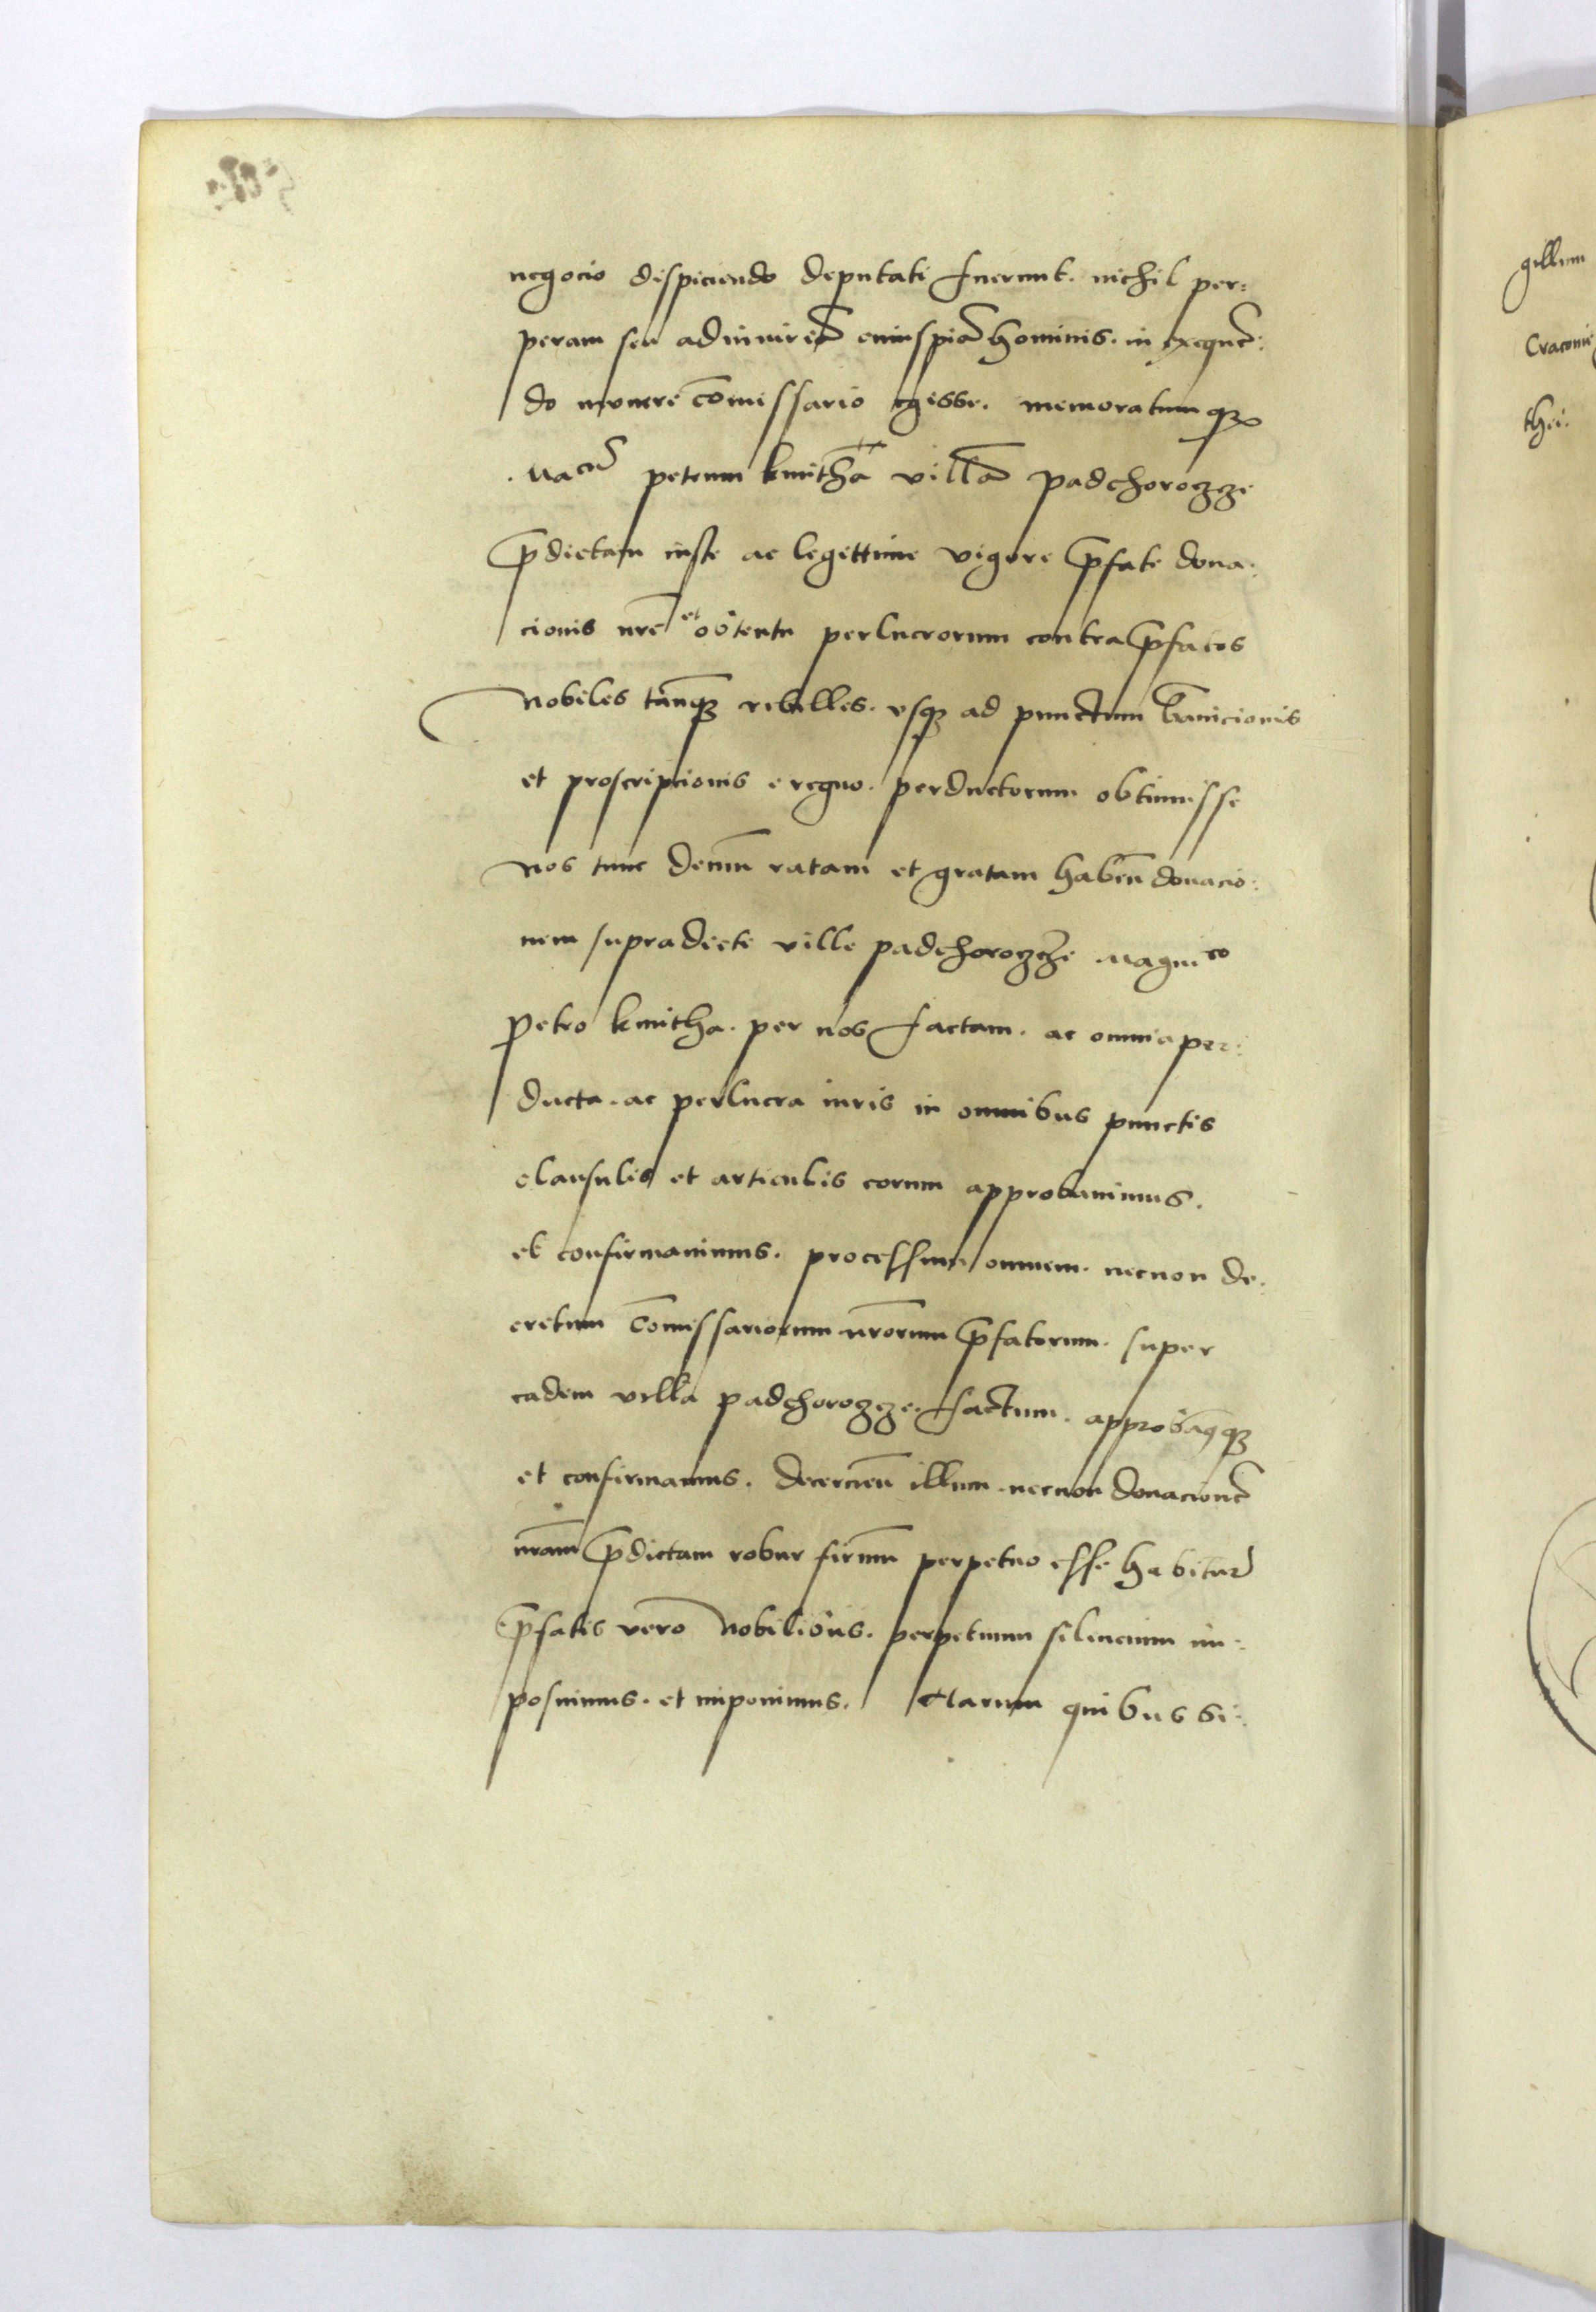 negocio dispiciendo deputati fuerunt. nichil per:
peram seu ad iniuriã cuiuspiã hominis. in exequẽ:
do munere cõmissario egisse. memoratumqꝫ
Maᶜᵘ̃ petrum kmithã villã padchorozge
p̃dictam iuste ac legittime vigore p̃fate dona:
cionis nr̃e et obtentu perlucrorum contra p̃fatos
Nobiles tanq̃ꝫ rebelles. vsqꝫ ad punctum bãnicionis
et proscripcionis e regno. perductorum obtinuisse
Nos tunc demũ ratam et gratam habeñ donacio:
nem supradicte ville padchorozge Magniᶜᵒ
Petro kmitha. per nos factam. ac omnia per:
ducta. ac perlucra iuris in omnibus punctis
clausulis et articulis eorum approbauimus.
et confirmauimus. processum omnem. necnon de:
cretum cõmissariorum nr̃orum p̃fatorum. super
eadem villa padchorozge. factum. approbãqꝫ
et confirmamus. decerneñ illum. necnon donacionẽ
nr̃am p̃dictam robur firmũ perpetuo esse habiturã
p̃fatis vero Nobilibus. perpetuum silencium im:
posuimus. et imponimus. Harum quibus si:
gillum
Cracouie
thei.